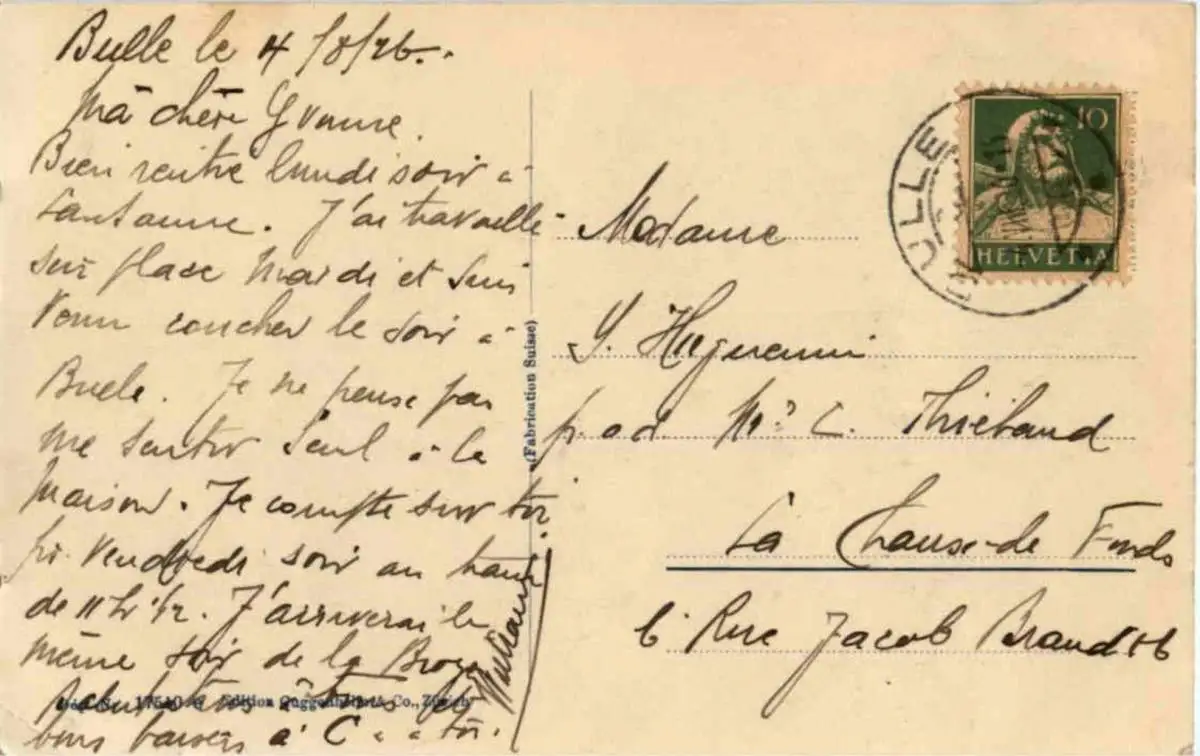 Bulle le 4/8/26.
Ma chère Yvonne.
Bien rentré lundi soir à
Lausanne. J'ai travaillé
sur place Mardi et suis
venu coucher le soir à
Bulle. Je ne pense pas
me sentir seul à la
Maison. Je compte sur toi
pr. Vendredi soir au train
de 11 hr 1/2. J'arriverai le
même soir de la Broye
à tous et
bons baisers à C à toi.
(Fabrication Suisse)
17510 Edition Guggenheim & Co., Zürich
BULLE
10
HELVETIA
Madame
Y. Huguenin
p. ad. Mr. C. Thiébaud
La Chaux-de Fonds
6 Rue Jacob Brandt 6